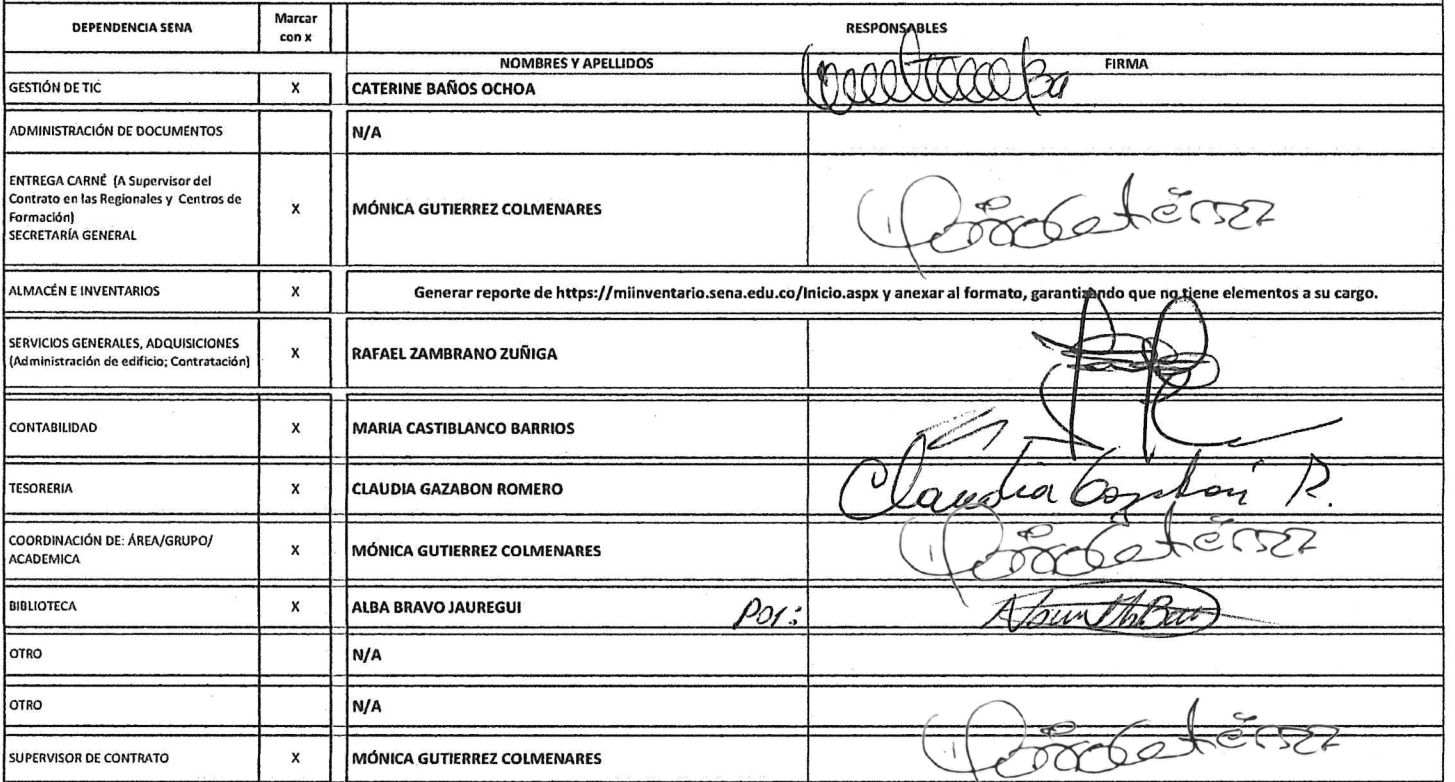 DEPENDENCIA SENA
Marcar
con x
RESPONSABLES
NOMBRES Y APELLIDOS
FIRMA
GESTIÓN DE TIC
X
CATERINE BAÑOS OCHOA
ADMINISTRACIÓN DE DOCUMENTOS
N/A
ENTREGA CARNÉ (A Supervisor del
Contrato en las Regionales y Centros de
Formación)
SECRETARÍA GENERAL
X
MÓNICA GUTIERREZ COLMENARES
ALMACÉN E INVENTARIOS
X
Generar reporte de https://miinventario.sena.edu.co/Inicio.aspx y anexar al formato, garantizando que no tiene elementos a su cargo.
SERVICIOS GENERALES, ADQUISICIONES
(Administración de edificio; Contratación)
X
RAFAEL ZAMBRANO ZUÑIGA
CONTABILIDAD
X
MARIA CASTIBLANCO BARRIOS
TESORERIA
X
CLAUDIA GAZABON ROMERO
Claudia Gazabon R.
COORDINACIÓN DE: ÁREA/GRUPO/
ACADEMICA
X
MÓNICA GUTIERREZ COLMENARES
BIBLIOTECA
X
ALBA BRAVO JAUREGUI
Por:
OTRO
N/A
OTRO
N/A
SUPERVISOR DE CONTRATO
X
MÓNICA GUTIERREZ COLMENARES